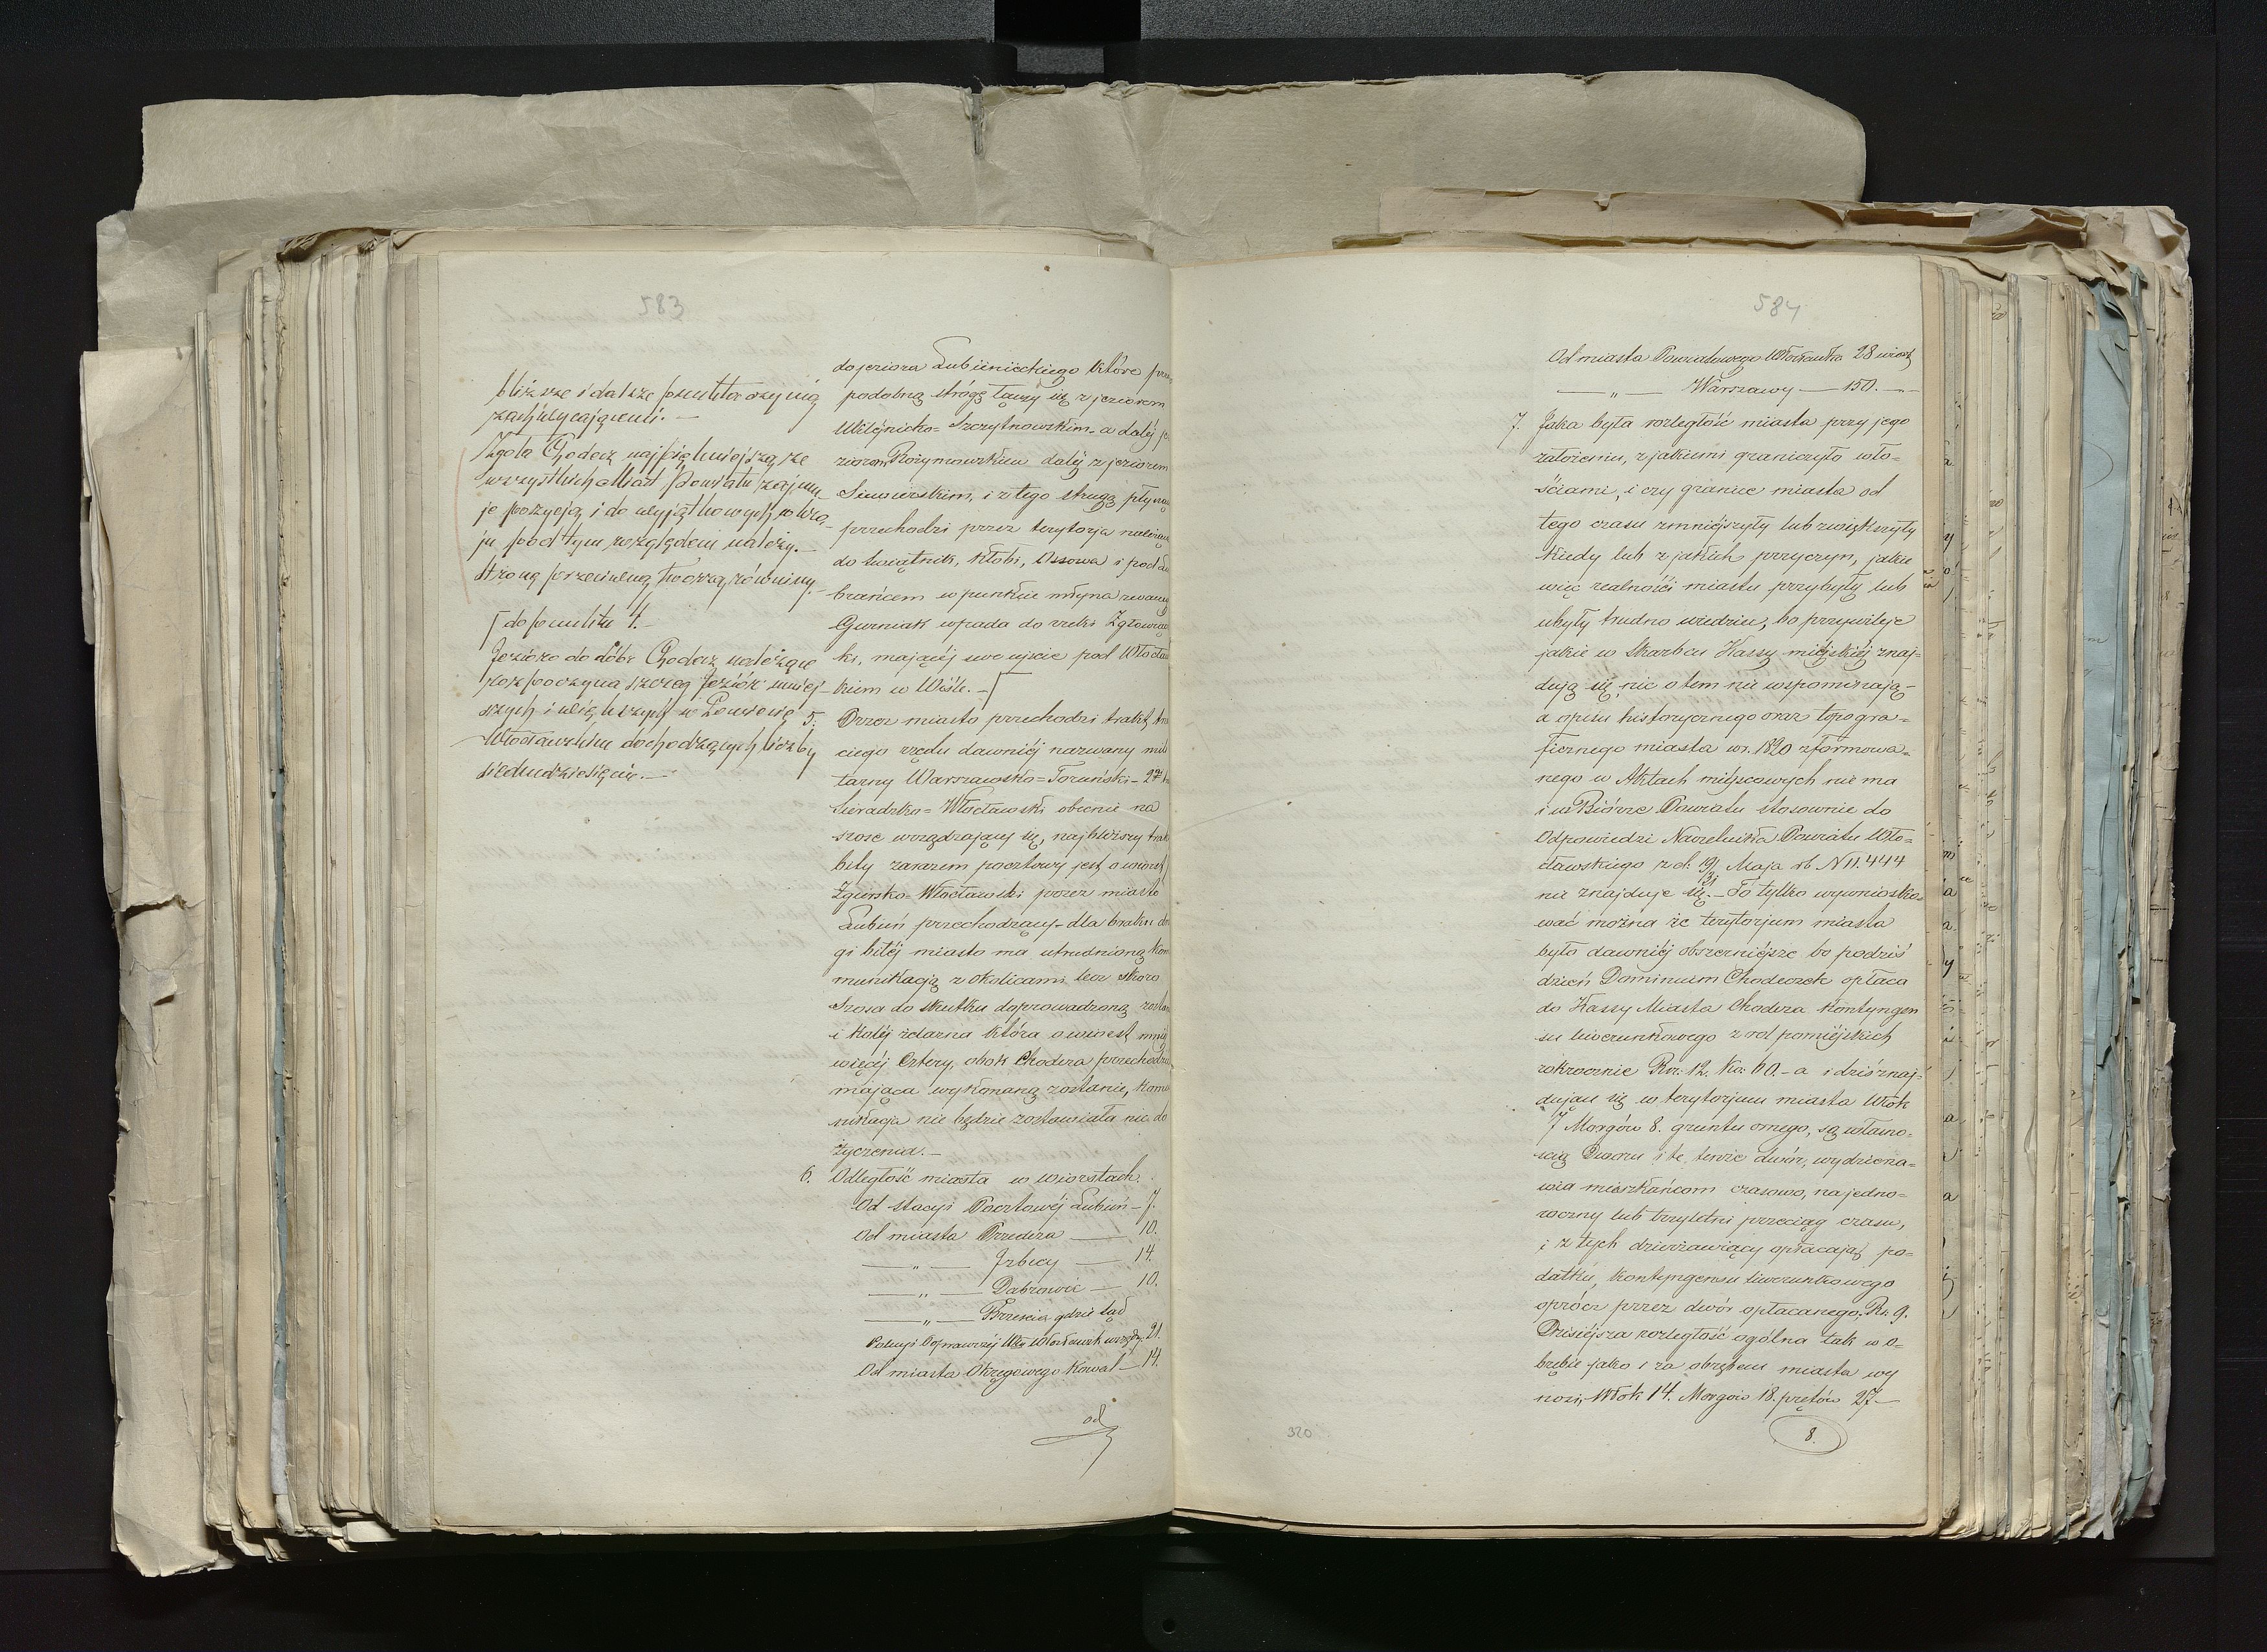 583
bliższe i dalsze punkta czynią
zachwycającemi. —
Zgoła Chodecz najpiękniejszą ze
wszystkich Miast Powiatu zajmu-
je pozycją i do wyjątkowych w kra-
ju pod tym względem należy. —
stroną przeciwną tworzą równiny. —
do punktu 4. —
Jezioro do dóbr Chodecz należące
rozpoczyna szereg jeziór mniej-
szych i większych w Powiecie
Włocławskim dochodzących liczby
siedmdziesięciu. —
do jeziora Lubienieckiego które
podobną strógę łączy się z jeziorem
Szczytnowskim - a dalej
dalej z jeziorem
i z tego strugą
przechodzi przez terytorja
do Świątnik, Kłobi, Ossowa i pod
brańcem w punkcie młyna
Gurniak wpada do rzeki
ki, mającej swe ujście pod
kiem w Wiśle. —
5. Przez miasto przechodzi trakt
ciego rzędu dawniej nazwany
tarny Warszawsko = Toruński - 2
Sieradzko = Włocławski obecnie na
szosę urządzający się, najbliższy
bity zarazem pocztowy jest o
Zgiersko = Włocławski przez miasto
Lubień przechodzący - dla braku
gi bitéj miasto ma utrudnioną
munikacją z okolicami lecz skoro
Szosa do skutku doprowadzoną
i kolej żelazna która o wiorst
więcej cztery, obok Chodcza
mająca wykonaną zostanie,
nikacja nie będzie zostawiała nic do
życzenia. —
6. Odległość miasta w wiorstach.
Od stacyi Pocztowéj Lubień — 7.
Od miasta Przedcza — 10.
— „ — Izbicy — 14.
— „ — Dąbrowic — 10.
— „ — Brześcia gdzie Sąd
Policyi Poprawczej 21.
Od miasta Okręgowego Kowal — 14.
od
584
Od miasta Powiatowego Włocławka 28 wiorst
— „ — Warszawy — 150. —
7. Jaka była rozległość miasta przy jego
założeniu, z jakiemi graniczyło wło=
ściami, i czy granice miasta od
tego czasu zmniejszyły lub zwiększyły
kiedy lub z jakich przyczyn, jakie
więc realności miastu przybyły lub
ubyły trudno wiedzieć, bo przywileje
jakie w Skarbcu Kassy miejskiej znaj=
dują się, nic o tem nie wspominają -
a opisu historycznego oraz topogra=
ficznego miasta w r. 1820 zformowa=
nego w Aktach miejscowych nie ma
i w Biórze Powiatu stosownie do
Odpowiedzi Naczelnika Powiatu Wło=
cławskiego z d. 19/31 Maja rb N 11.444
nie znajduje się. — To tylko wywniosko=
wać można że terytorjum miasta
było dawniej obszerniejsze bo podziś
dzień Dominium Chodeczek opłaca
do Kassy Miasta Chodcza Kontyngen
su liwerunkowego z ról pomiejskich
rokrocznie Rsr. 12. Ko: 60. - a i dziś znaj=
dujące się w terytorjum miasta Włók
7 Morgów 8. gruntu ornego, są własno=
ścią Dworu i te tenże dwór, wydzierża=
wia mieszkańcom czasowo, na jedno=
roczny lub trzyletni przeciąg czasu,
i z tych dzierżawiący opłacają po=
datku, Kontyngensu liwerunkowego
oprócz przez dwór opłacanego, Rs. 9.
Dzisiejsza rozległość ogólna tak w o=
brębie jako i za obrębem miasta wy
nosi, Włok 14. Morgów 18. prętów 27 —
8.
320